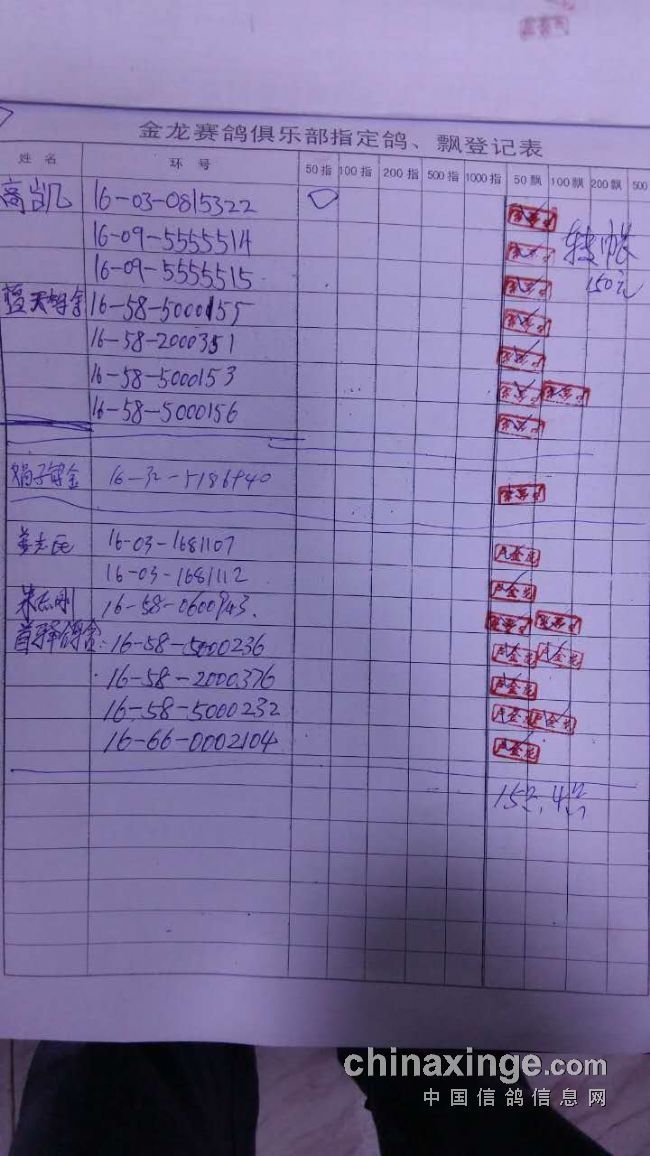 金龙赛鸽俱乐部指定鸽、飘登记表
姓 名 环 号 50指 100指 200指 500指 1000指 50飘 100飘 200飘 500
高凯 16-03-0815322
16-09-5555514 转帐
16-09-5555515 150元
蓝天鸽舍 16-58-5000155
16-58-2000351
16-58-5000153
16-58-5000156
鸽舍
16-03-1681107
16-03-1681112
16-58-0600943.
鸽舍: 16-58-5000236
16-58-2000376
16-58-5000232
16-66-0002104
chinaxinge.com
中国信鸽信息网